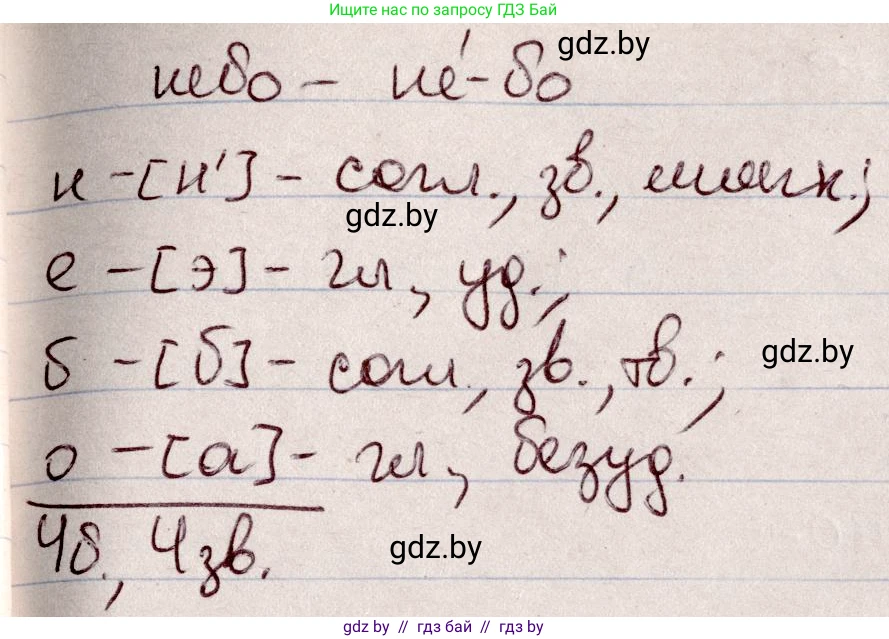 Ищите нас по запросу ГДЗ Бай
gdz.by
небо – не́-бо
н – [н'] – согл., зв., мягк.;
gdz.by
е – [э] – гл, уд.;
б – [б] – согл., зв., тв.;
gdz.by
о – [а] – гл, безуд.
4б., 4зв.
gdz.by
gdz.by // гдз бай // гдз by